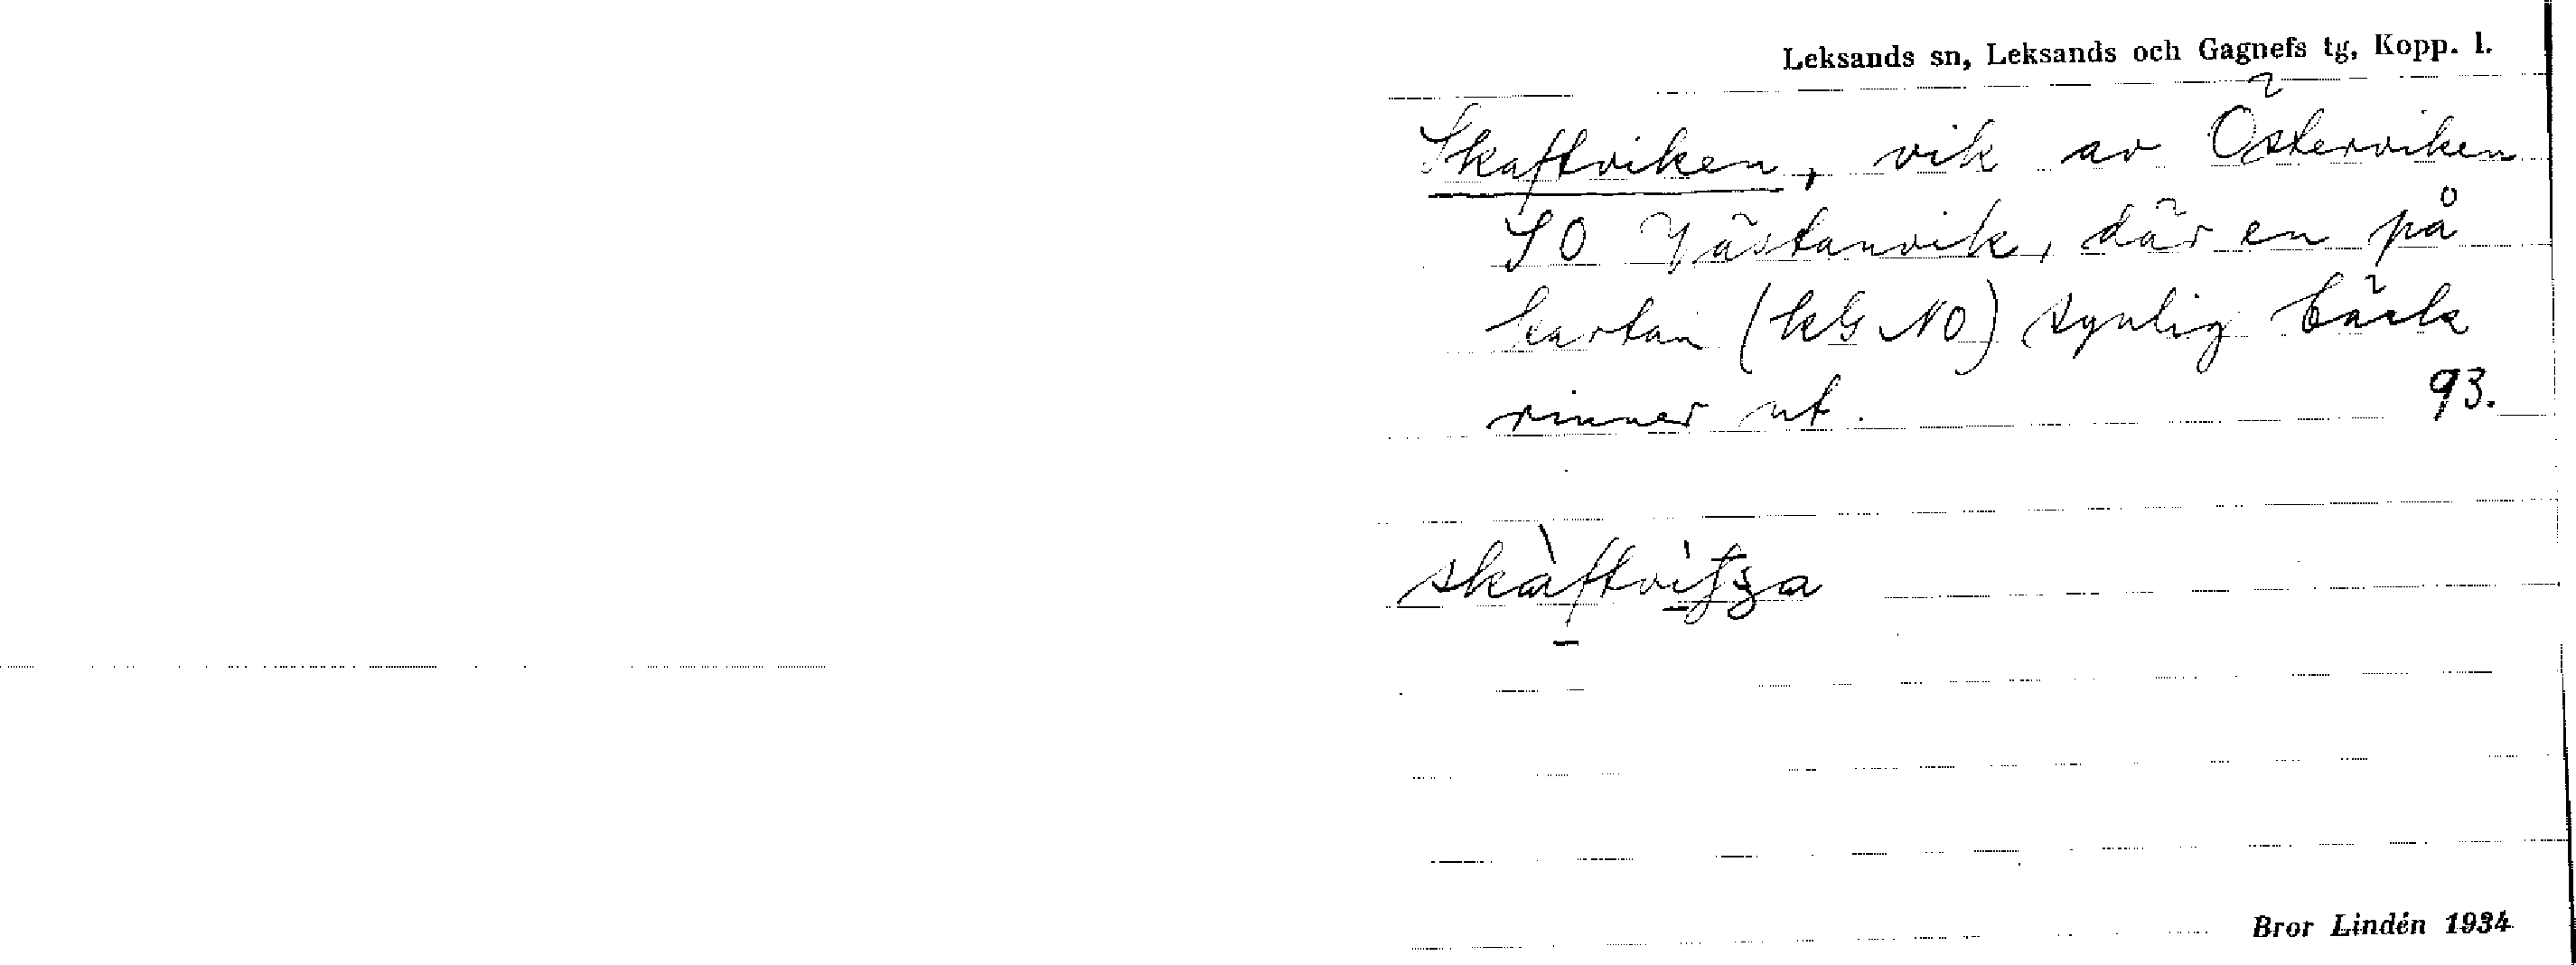 Leksands sn, Leksands och Gagnefs tg, Kopp. l.
Skaftviken, vik av Österviken
SO Västanvik, där en på
kartan (kG NO) synlig bäck
rinner ut. 93.
Bror Lindén 1934